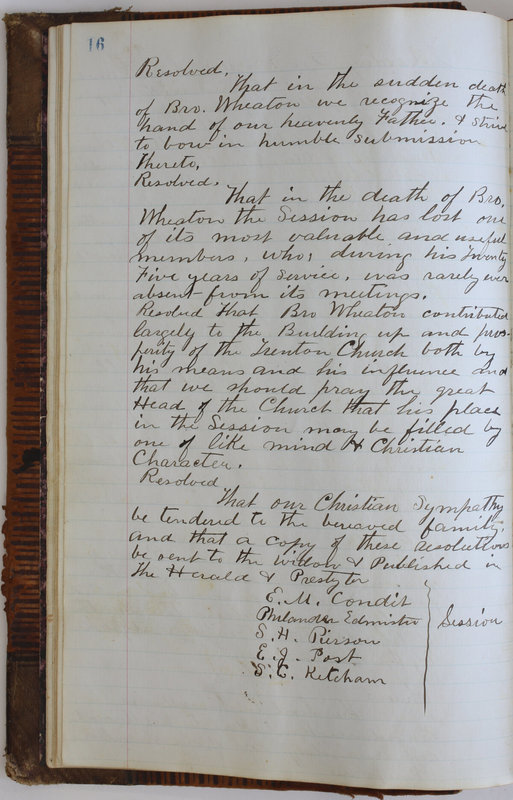 16
Resolved,
That in the sudden death
of Bro. Wheaton we recognize the
hand of our heavenly Father. & strive
to bow in humble submission
thereto,
Resolved.
That in the death of Bro.
Wheaton the Session has lost one
of its most valuable and useful
members, who, during his Twenty
Five years of service, was rarely ever
absent from its meetings.
Resolved That Bro Wheaton contributed
largely to the Building up and pros-
perity of the Trenton Church both by
his means and his influence and
that we should pray the great
Head of the Church that his place
in the Session may be filled by
one of like mind & Christian
Character.
Resolved
That our Christian Sympathy
be tendered to the bereaved family.
and that a copy of these resolutions
be sent to the widow & Published in
the Herald & Presbyter
E. M. Condit
Philander Edmister
S. H. Pierson
E. J. Post
S. C. Ketcham
Session